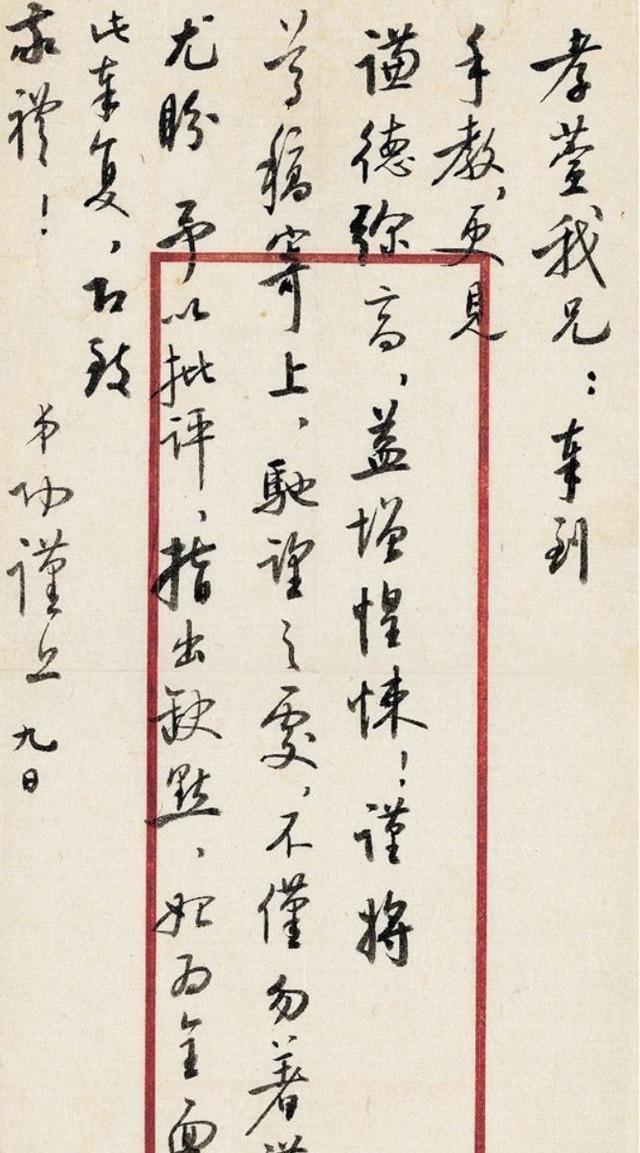 孝萱我兄：奉到
手教，更見
謙德弥高，益增惶悚！謹將
尊稿寄上，馳望之處，不僅勿著
尤盼 予以批评，指出缺點，始为全面
此奉复，即致
敬禮！
弟功謹上 九日